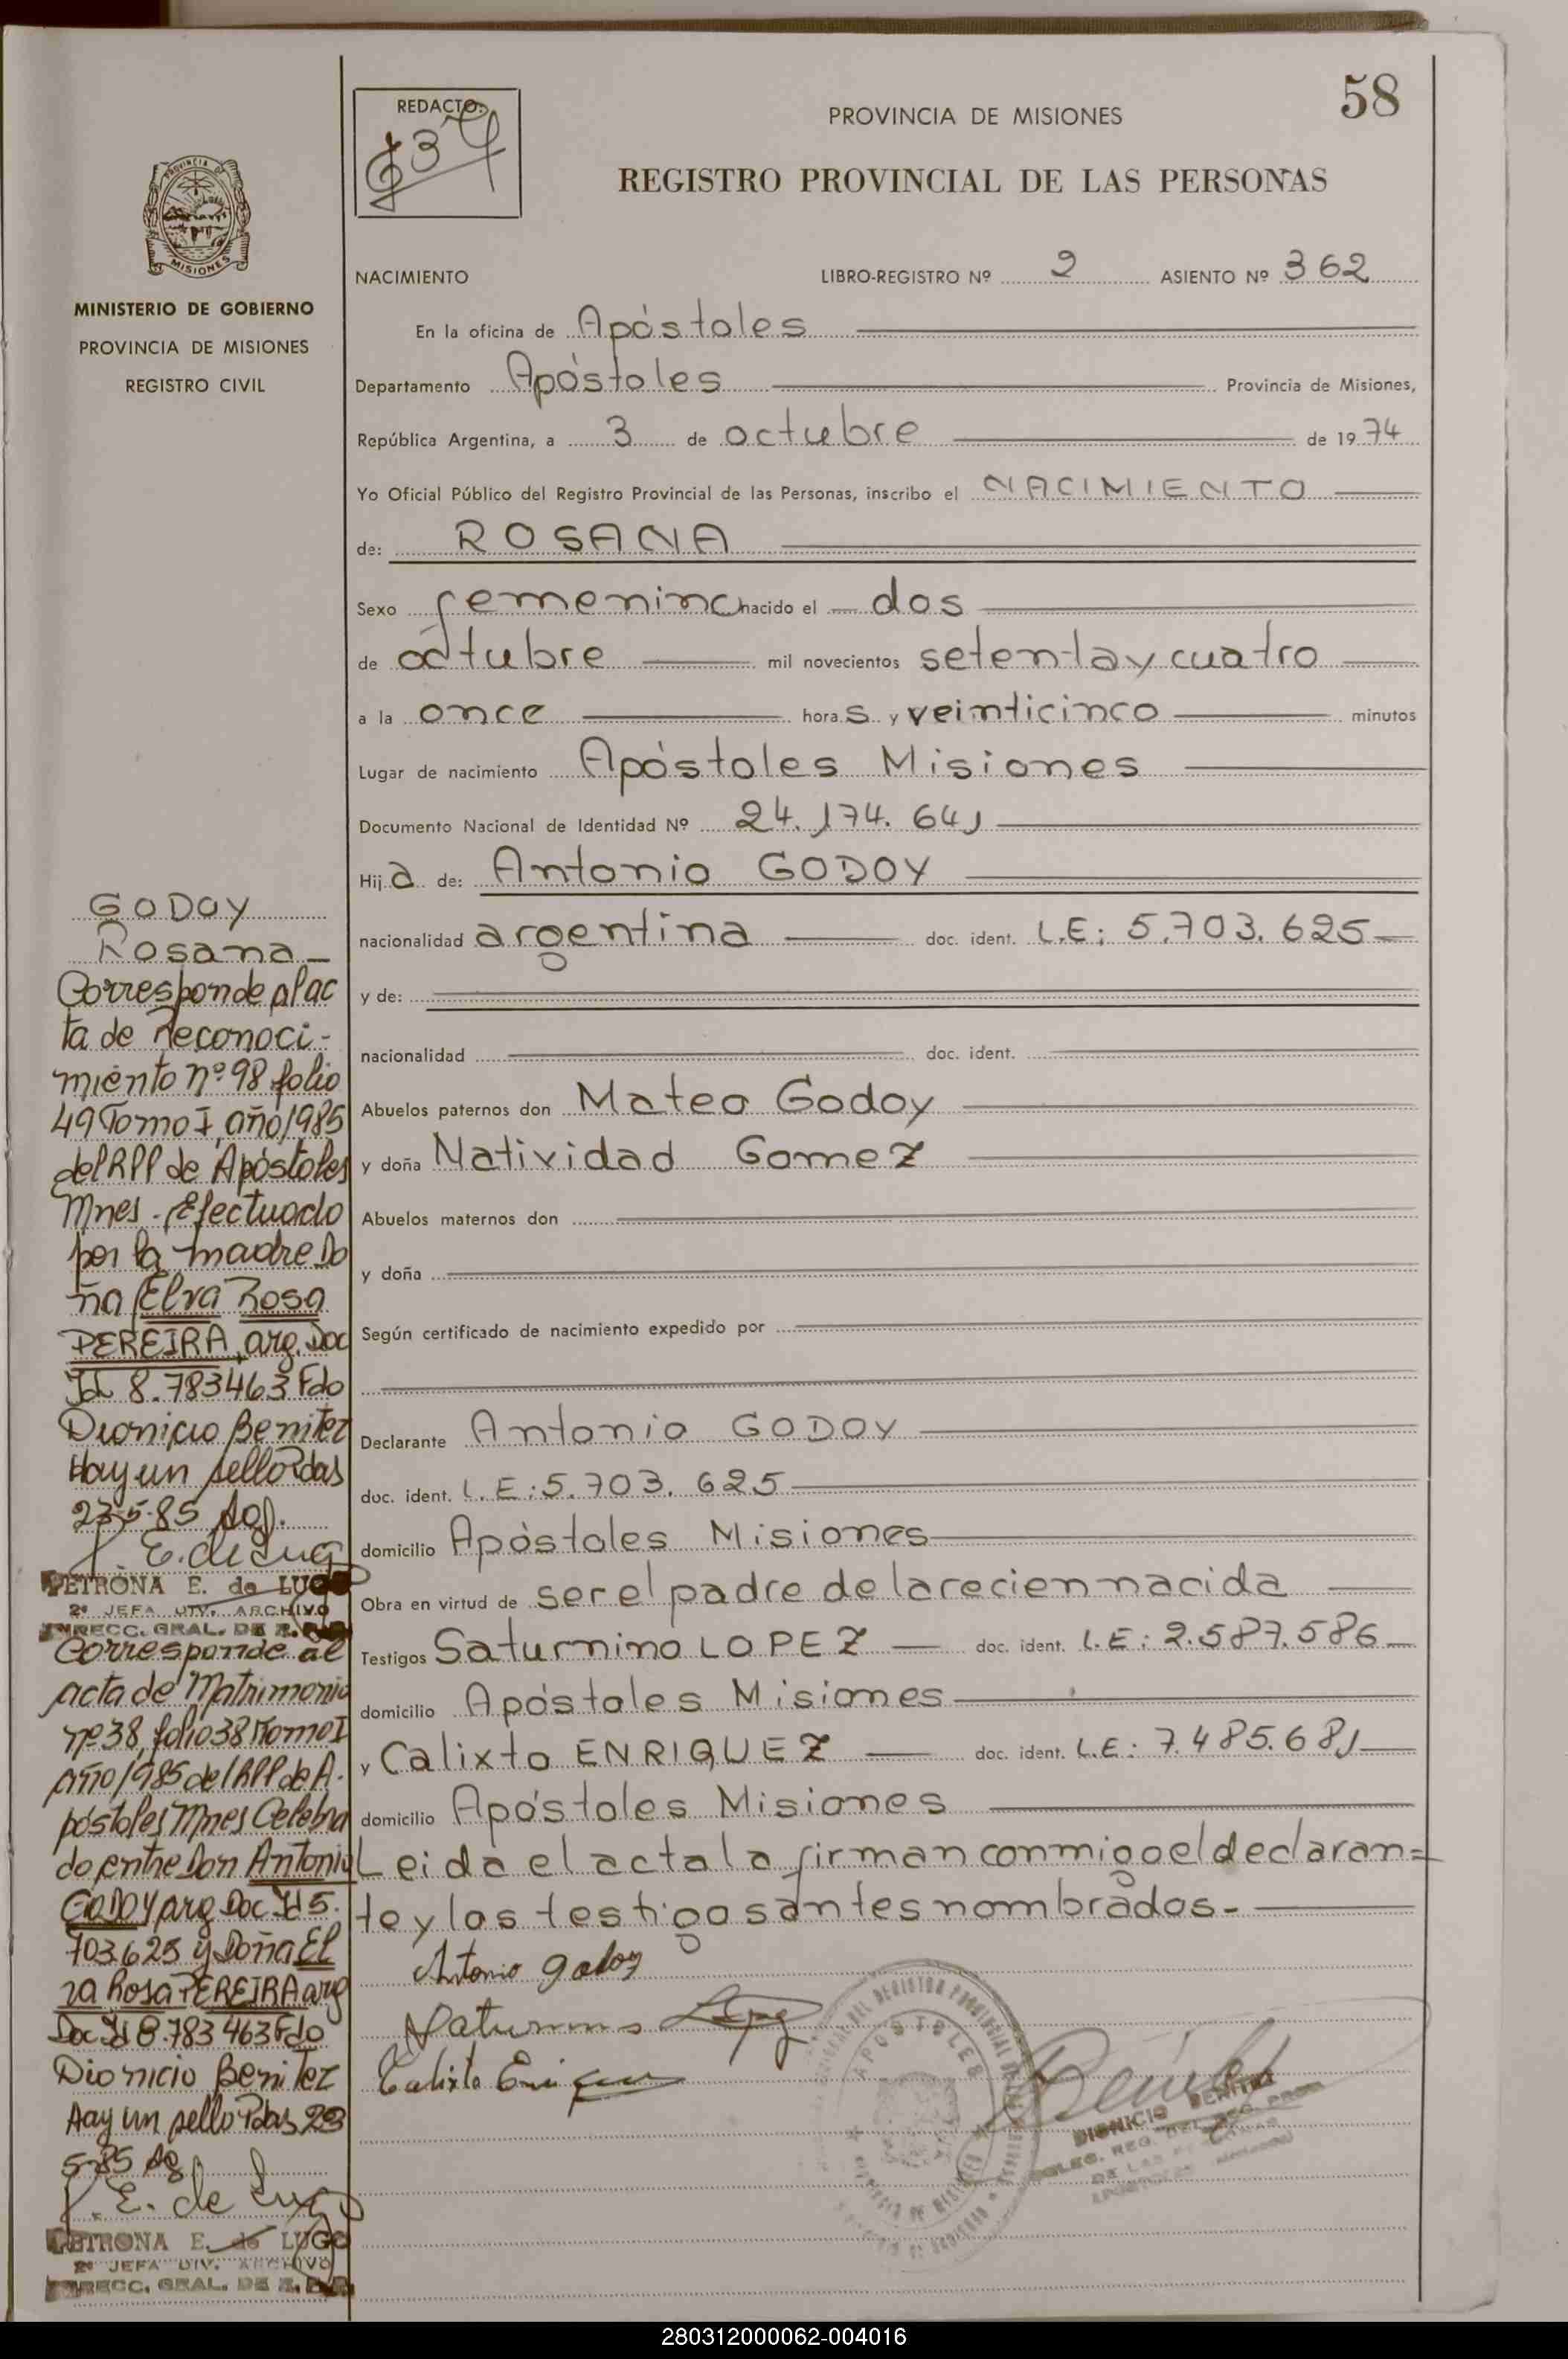 58
REDACTO:
PROVINCIA DE MISIONES
REGISTRO PROVINCIAL DE LAS PERSONAS
PROVINCIA D
MISIONES
MINISTERIO DE GOBIERNO
PROVINCIA DE MISIONES
REGISTRO CIVIL
NACIMIENTO LIBRO-REGISTRO Nº 2 ASIENTO Nº 362
En la oficina de Apóstoles
Departamento Apóstoles Provincia de Misiones,
República Argentina, a 3 de octubre de 1974
Yo Oficial Público del Registro Provincial de las Personas, inscribo el NACIMIENTO
de: ROSANA
Sexo femenino nacido el dos
de octubre mil novecientos setenta y cuatro
a la once horas y veinticinco minutos
Lugar de nacimiento Apóstoles Misiones
Documento Nacional de Identidad Nº 24.174.641
Hija de: Antonio GODOY
nacionalidad argentina doc. ident. L.E: 5.703.625
y de:
nacionalidad doc. ident.
Abuelos paternos don Mateo Godoy
y doña Natividad Gomez
Abuelos maternos don
y doña
Según certificado de nacimiento expedido por
Declarante Antonio GODOY
doc. ident. L.E: 5.703.625
domicilio Apóstoles Misiones
Obra en virtud de ser el padre de la recien nacida
Testigos Saturnino LOPEZ doc. ident. L.E: 2.587.586
domicilio Apóstoles Misiones
y Calixto ENRIQUEZ doc. ident. L.E: 7.485.681
domicilio Apóstoles Misiones
Leida el acta la firman conmigo el declaran=
te y los testigos antes nombrados.-
Antonio godoy
Saturnino Lopez
Calixto Enriquez
APOSTOLES
DIONICIO BENITEZ
GODOY
Rosana
Corresponde al ac
ta de Reconoci-
miento nº 98 folio
49 Tomo I, año 1985
del RPP de Apóstoles
Mnes. Efectuado
por la madre Do
ña Elva Rosa
PEREIRA, arg. Doc
Id 8.783463 Fdo
Dionicio Benitez
Hay un sello Pdas
23-5-85
E. de Lugo
PETRONA E. de LUGO
2ª JEFA DIV. ARCHIVO
DIRECC. GRAL. DE R.
Corresponde al
acta de Matrimonio
nº 38, folio 38 Tomo I
año 1985 del RPP de A.
póstoles Mnes Celebra
do entre Don Antonio
GODOY arg Doc Id 5.
703.625 y Doña El
va Rosa PEREIRA arg
Doc Id 8.783 463 Fdo
Dionicio Benitez
Hay un sello Pdas 23
5-85
E. de Lugo
PETRONA E. de LUGO
2ª JEFA DIV. ARCHIVO
DIRECC. GRAL. DE R.
280312000062-004016